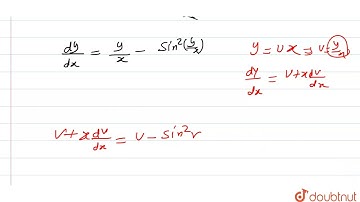 dy/dx = y/x - Sin²(y/x)
y = vx ⇒ v = y/x
dy/dx = v + x dv/dx
v + x dv/dx = v - Sin²v
doubtnut